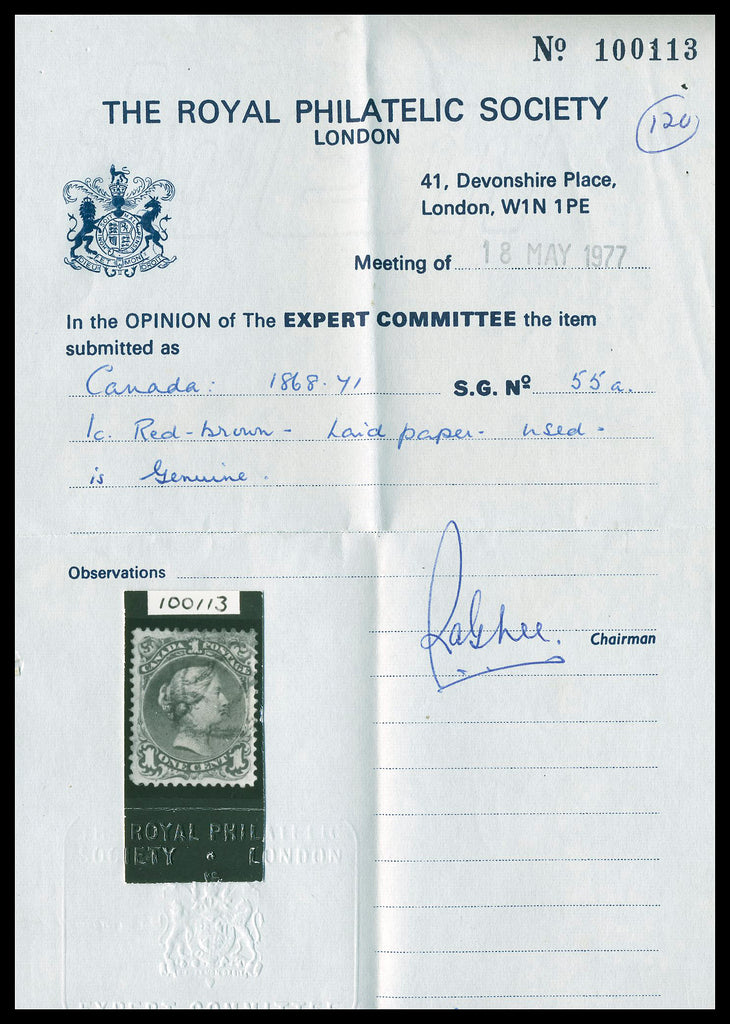 Nº 100113
THE ROYAL PHILATELIC SOCIETY
LONDON
120
41, Devonshire Place,
London, W1N 1PE
Meeting of 18 MAY 1977
In the OPINION of The EXPERT COMMITTEE the item
submitted as
Canada: 1868-71 S.G. Nº 55a.
1c. Red-brown - Laid paper - used -
is Genuine.
Observations
100113
Chairman
CANADA 1 POSTAGE
1 ONE CENT 1
ROYAL PHILATELIC
SOCIETY * LONDON
EXPERT COMMITTEE